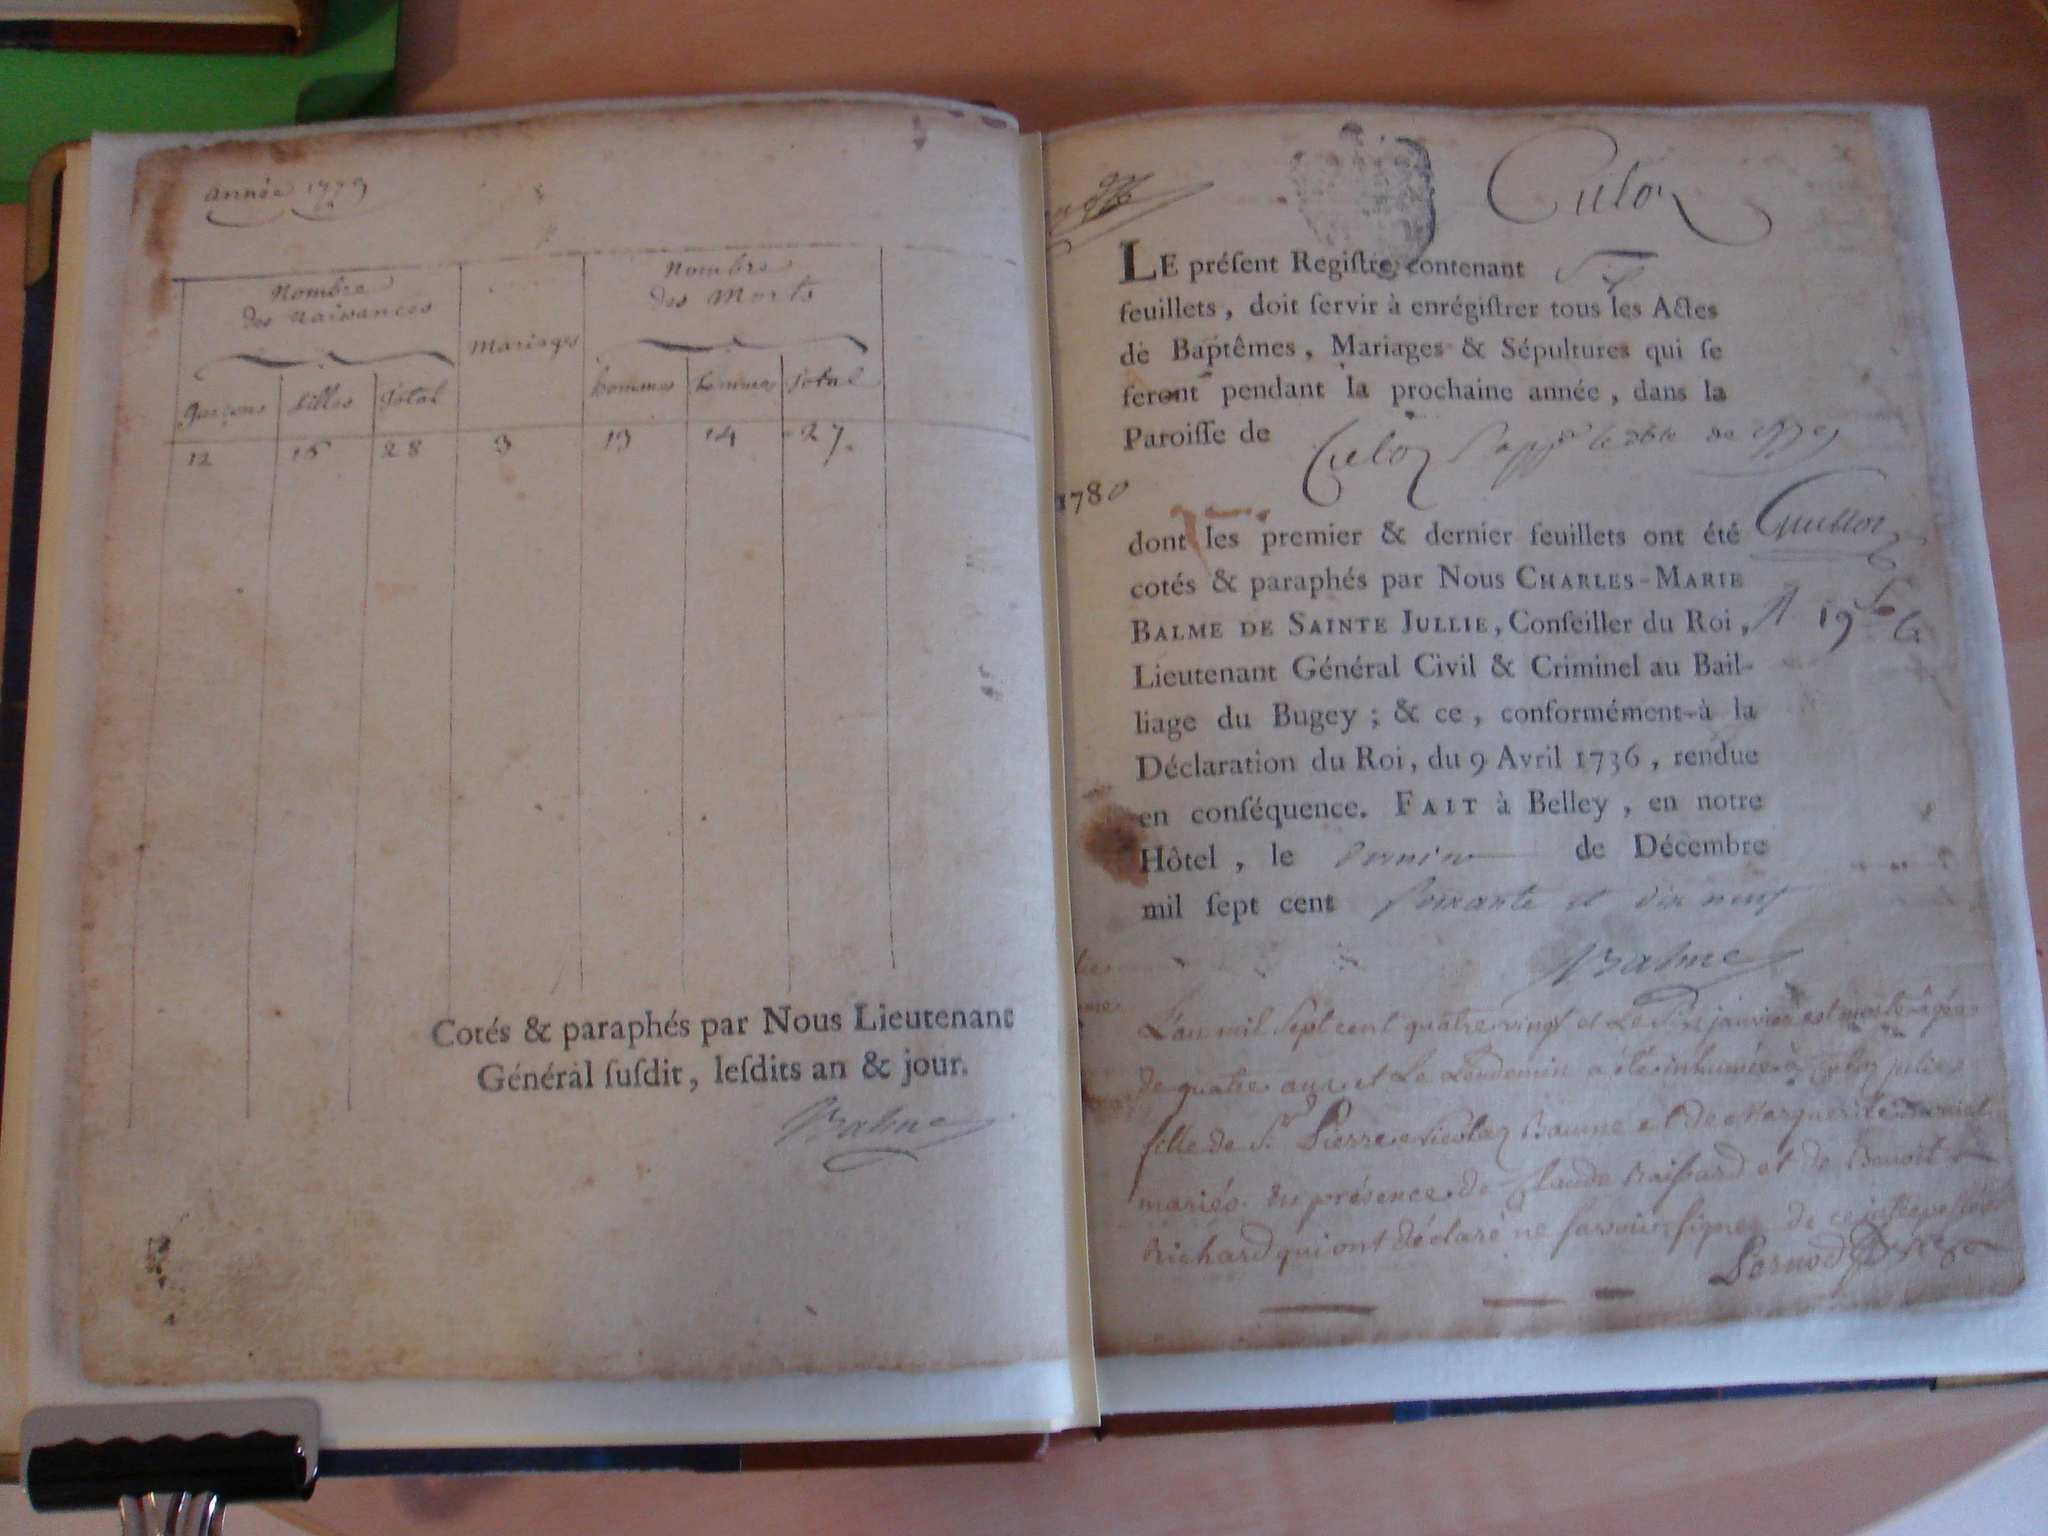 année 1779
Nombre
des Naissances
Mariages
Nombre
des Morts
garçons filles Total
hommes femmes Total
12 16 28 3 13 14 27.
Cotés & paraphés par Nous Lieutenant
Général ſuſdit, leſdits an & jour.
Balme
Culoz
LE préſent Regiſtre contenant Six
feuillets, doit ſervir à enrégiſtrer tous les Actes
de Baptêmes, Mariages & Sépultures qui ſe
feront pendant la prochaine année, dans la
Paroiſſe de Culoz
1780
dont les premier & dernier feuillets ont été
cotés & paraphés par Nous CHARLES-MARIE
BALME DE SAINTE JULLIE, Conſeiller du Roi,
Lieutenant Général Civil & Criminel au Bail-
liage du Bugey ; & ce, conformément à la
Déclaration du Roi, du 9 Avril 1736, rendue
en conſéquence. FAIT à Belley, en notre
Hôtel, le dernier de Décembre
mil ſept cent soixante et dix neuf
Balme
L'an mil sept cent quatre vingt et Le Six janvier est morte âgée
de quatre ans et Le Lendemain a été inhumée à Culoz julie
fille de Sr. Pierre Nicolaz Baume et de Marguerite
mariés. En présence de Claude Raissard et de Benoît
Richard qui ont déclaré ne savoir signer de ce
Pernod